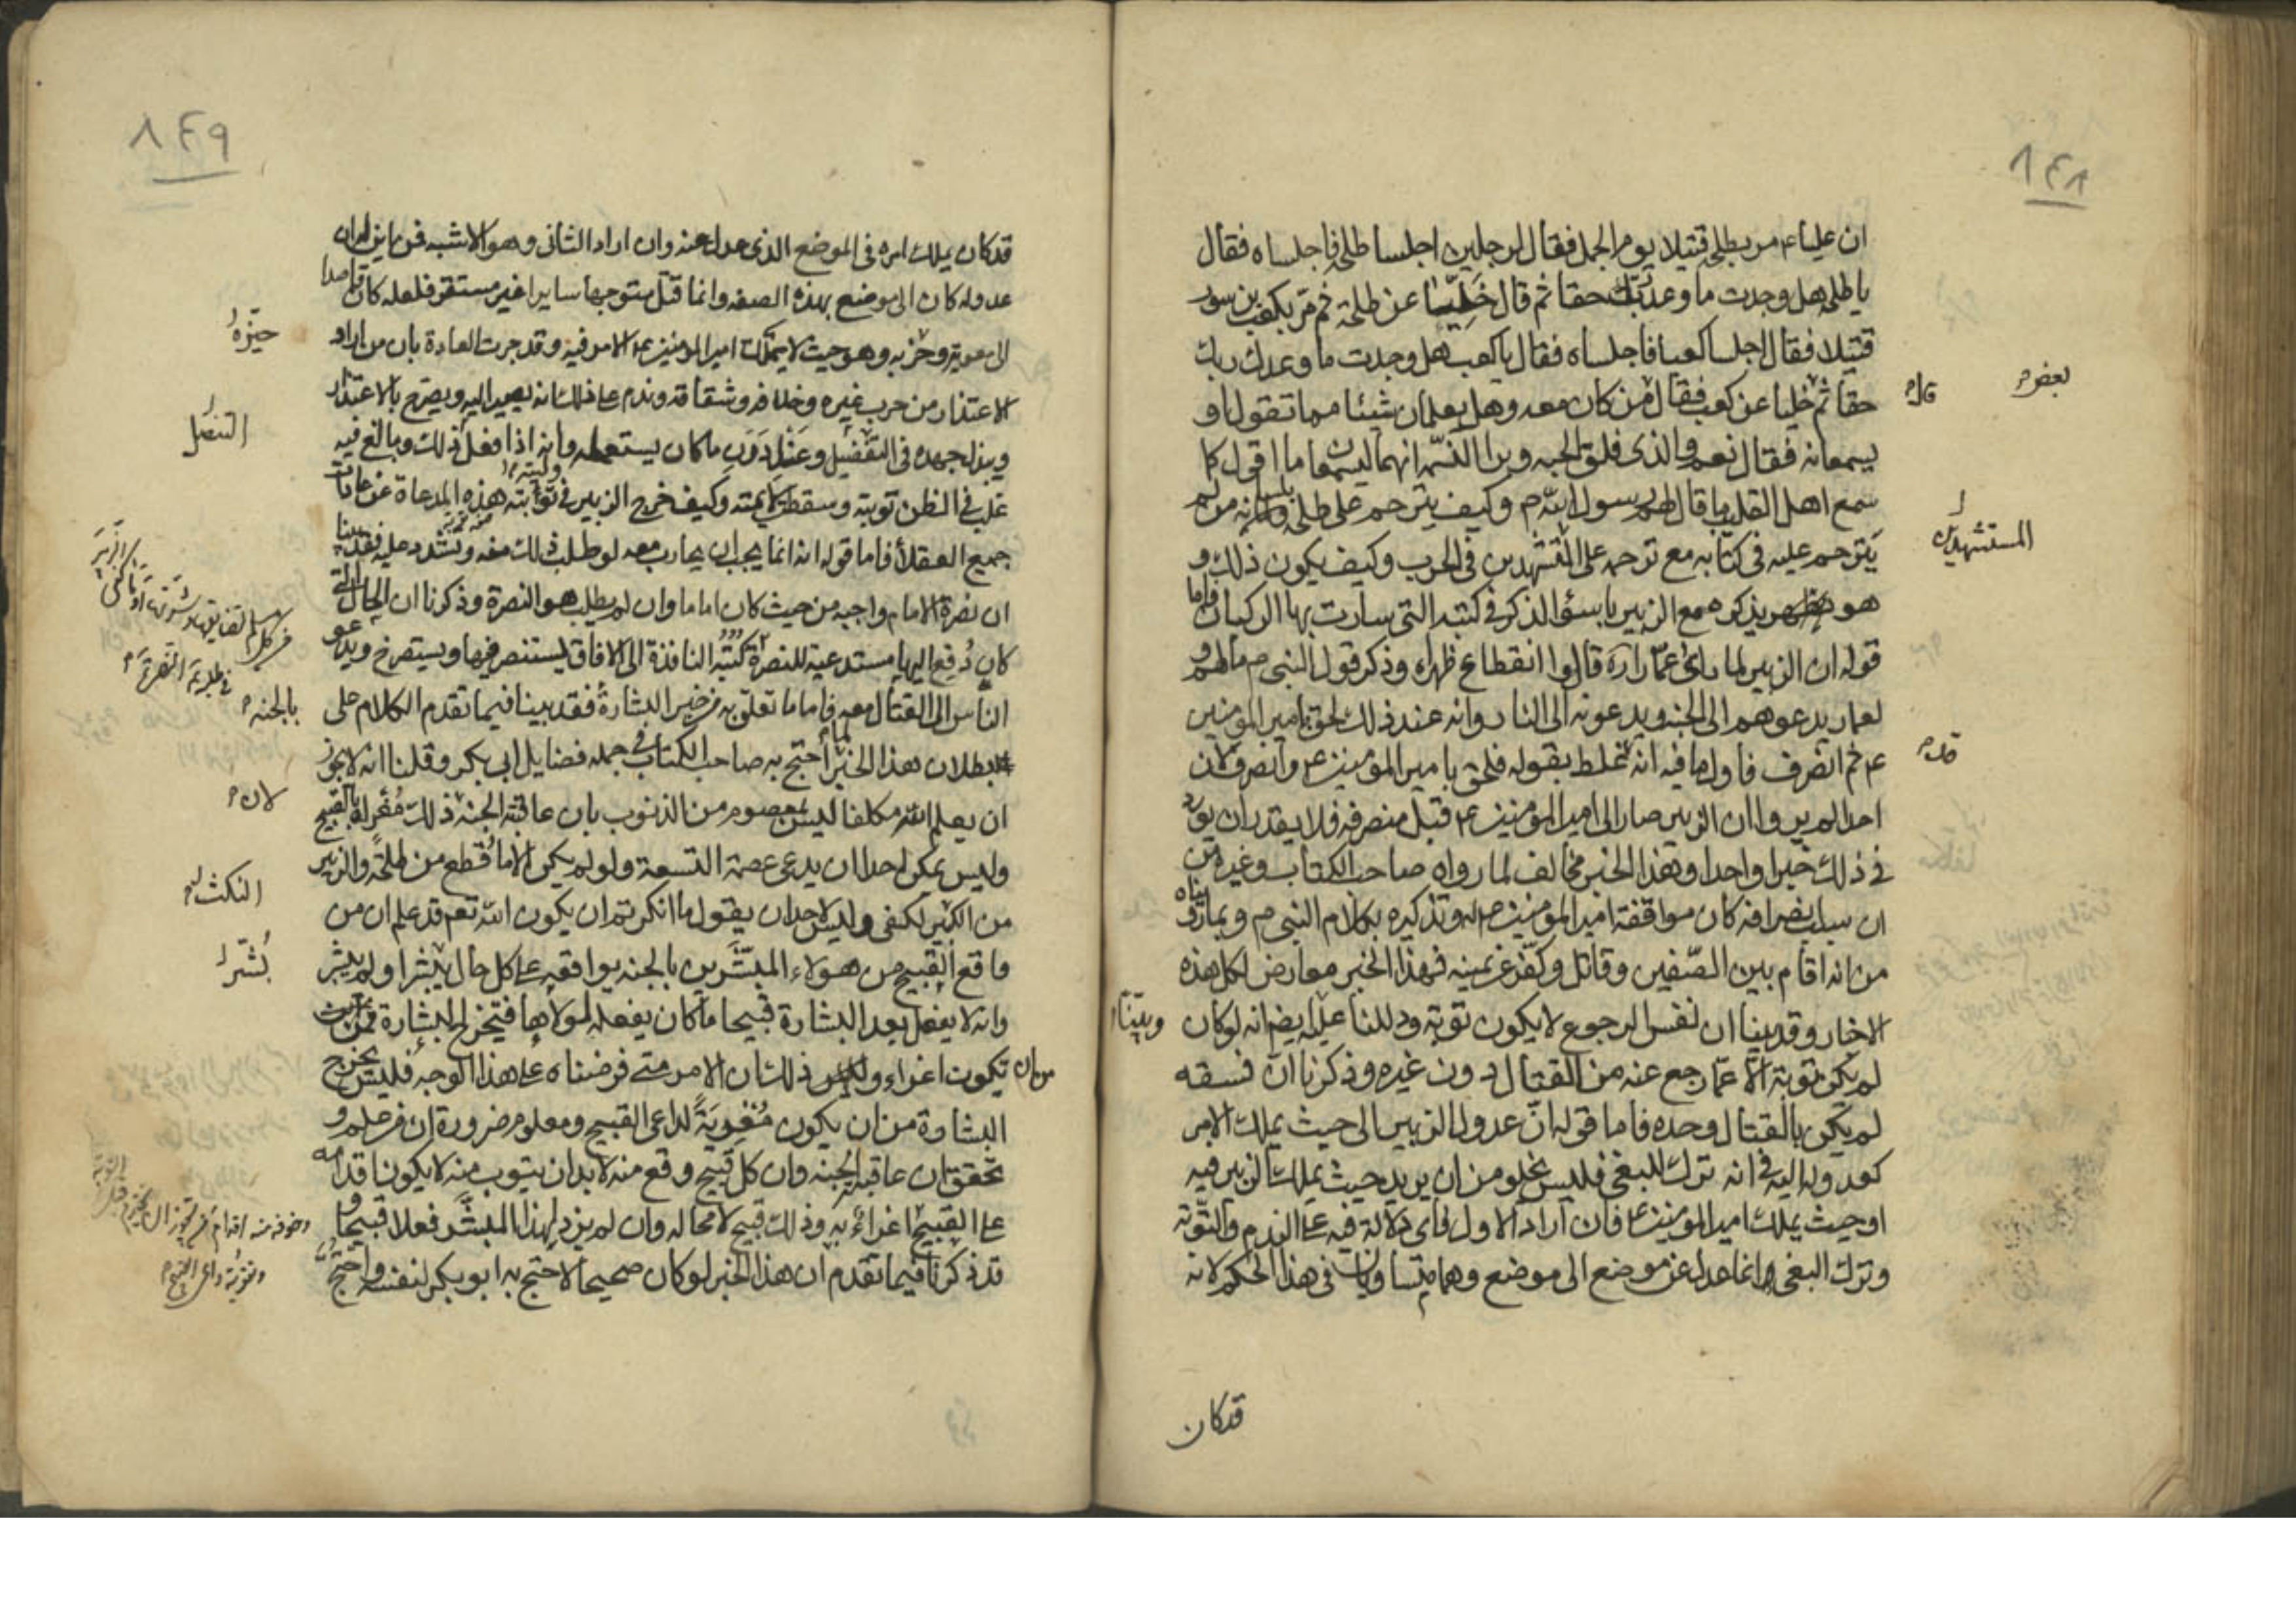 ٨٤٨
ان عليا ع مر بطلحة قتيلا يوم الجمل فقال لرجلين اجلسا طلحة فاجلساه فقال
يا طلحة هل وجدت ما وعدك ربك حقا ثم قال خليا عن طلحة ثم مر بكعب بن سور
قتيلا فقال اجلسا كعبا فاجلساه فقال يا كعب هل وجدت ما وعدك ربك
حقا ثم خليا عن كعب فقال من كان معه وهل يعلمان شيئا مما تقول او
يسمعانه فقال نعم والذي فلق الحبه وبرا النسمه انهما ليسمعان ما اقول كما
سمع اهل القليب ما قال لهم رسول الله ص وكيف يترحم على طلحة من لم
يترحم عليه في كتابه مع ترحمه على في الحرب وكيف يكون ذلك و
هو يذكره مع الزبير باسؤ الذكر في كتبه التي سارت بها الركبان فاما
قوله ان الزبير لما راى عمارا ره قال وا انقطاع ظهراه وذكر قول النبي ص مالهم و
لعمار يدعوهم الى الجنه ويدعونه الى النار وانه عند ذلك لحق بامير المومنين
ع ثم انصرف فاول ما فيه انه غلط بقوله فلحق بامير المومنين ع وانصرف لان
احدا لم يرو ان الزبير صار الى امير المومنين ع قبل منصرفه فلا يقدر ان يورد
في ذلك خبرا واحدا وهذا الخبر مخالف لما رواه صاحب الكتاب وغيره من
ان سبب انصرافه كان مواقفة امير المومنين ع له وتذكيره بكلام النبي ص وبما رويناه
من انه اقام بين الصفين وقاتل وكفر عن يمينه فهذا الخبر معارض لكل هذه
الاخبار وقد بينا ان نفس الرجوع لا يكون توبة ودللنا عليه ايضا انه لو كان
لم يكن توبة الا عما رجع عنه من القتال دون غيره وذكرنا ان فسقه
لم يكن بالقتال وحده فاما قوله ان عدول الزبير الى حيث يملك الامر
كعدوله اليه في انه ترك للبغي فليس يخلو من ان يريد حيث يملك الزبير فيه
او حيث يملك امير المومنين ع فان اراد الاول فاي دلالة فيه على الندم والتوبة
وترك البغي وانما عدل عن موضع الى موضع وهما متساويان في هذا الحكم لانه
قد كان
بعض
قال
المستشهدين
قد
وبينا
٨٤٩
قد كان يملك امره في الموضع الذي عدل عنه وان اراد الثاني وهو الاشبه فمن اين له ان
عدوله كان الى موضع بهذه الصفه وانما قتل متوجها سايرا غير مستقر فلعله كان قاصدا
الى معوية وحزبه وهو حيث لا يملك امير المومنين ع الامر فيه وقد جرت العادة بان من اراد
الاعتذار من حرب غيره وخلافه وشقاقه وندم على ذلك انه يصير اليه ويصرح بالاعتذار
ويبذل جهده في ما كان يستعمله وانه اذا فعل ذلك وبالغ فيه
غلب في الظن توبته وسقطت لايمته وكيف خرج الزبير في توبته هذه المدعاة عن عادات
جميع العقلأ فاما قوله انه انما يجب ان يحارب معه لو طلب ذلك منه وتشدد عليه فقد بينا
ان نصرة الامام واجبه من حيث كان اماما وان لم يطلب هو النصرة وذكرنا ان الحال التي
كان دفع اليها مستدعية للنصرة كتبه النافذة الى الافاق يستنصر فيها ويستصرخ ويدعو
الناس الى القتال معه فاما ما تعلق به من خبر البشارة فقد بينا فيما تقدم الكلام على
بطلان هذا الخبر لما احتج به صاحب الكتاب في جمله فضايل ابي بكر وقلنا انه لا يجوز
ان يعلم الله مكلفا ليس بمعصوم من الذنوب بان عاقبته الجنه ذلك مغر له بالقبيح
وليس يمكن احدا ان يدعى عصمة التسعة ولو لم يكن الا ما قطع من طلحة والزبير
من الكبير لكفى وليس لاحد ان يقول ما انكرتم ان يكون الله تعم قد علم ان من
واقع القبيح من هولاء المبشرين بالجنه يواقعه على كل حال بشرا ولم يبشر
وانه لا يفعل بعد البشارة قبيحا ما كان يفعله لولاها فتخرج البشارة من ان
تكون اغراء وليس ذلك ان الامر متى فرضناه على هذا الوجه فليس يخرج
البشارة من ان يكون مقوية لداعي القبيح ومعلوم ضرورة ان من علم و
تحقق ان عاقبته الجنه وان كل قبيح وقع منه لا بد ان يتوب منه لا يكون اقدامه
على القبيح اغراء به وذلك قبيح لا محاله وان لم يزد لهذا المبشر فعلا قبيحا و
قد ذكرنا فيما تقدم ان هذا الخبر لو كان صحيحا لاحتج به ابو بكر لنفسه واحتج
حيزه
التنصل
بالجنه
لان
النكث
بشرا